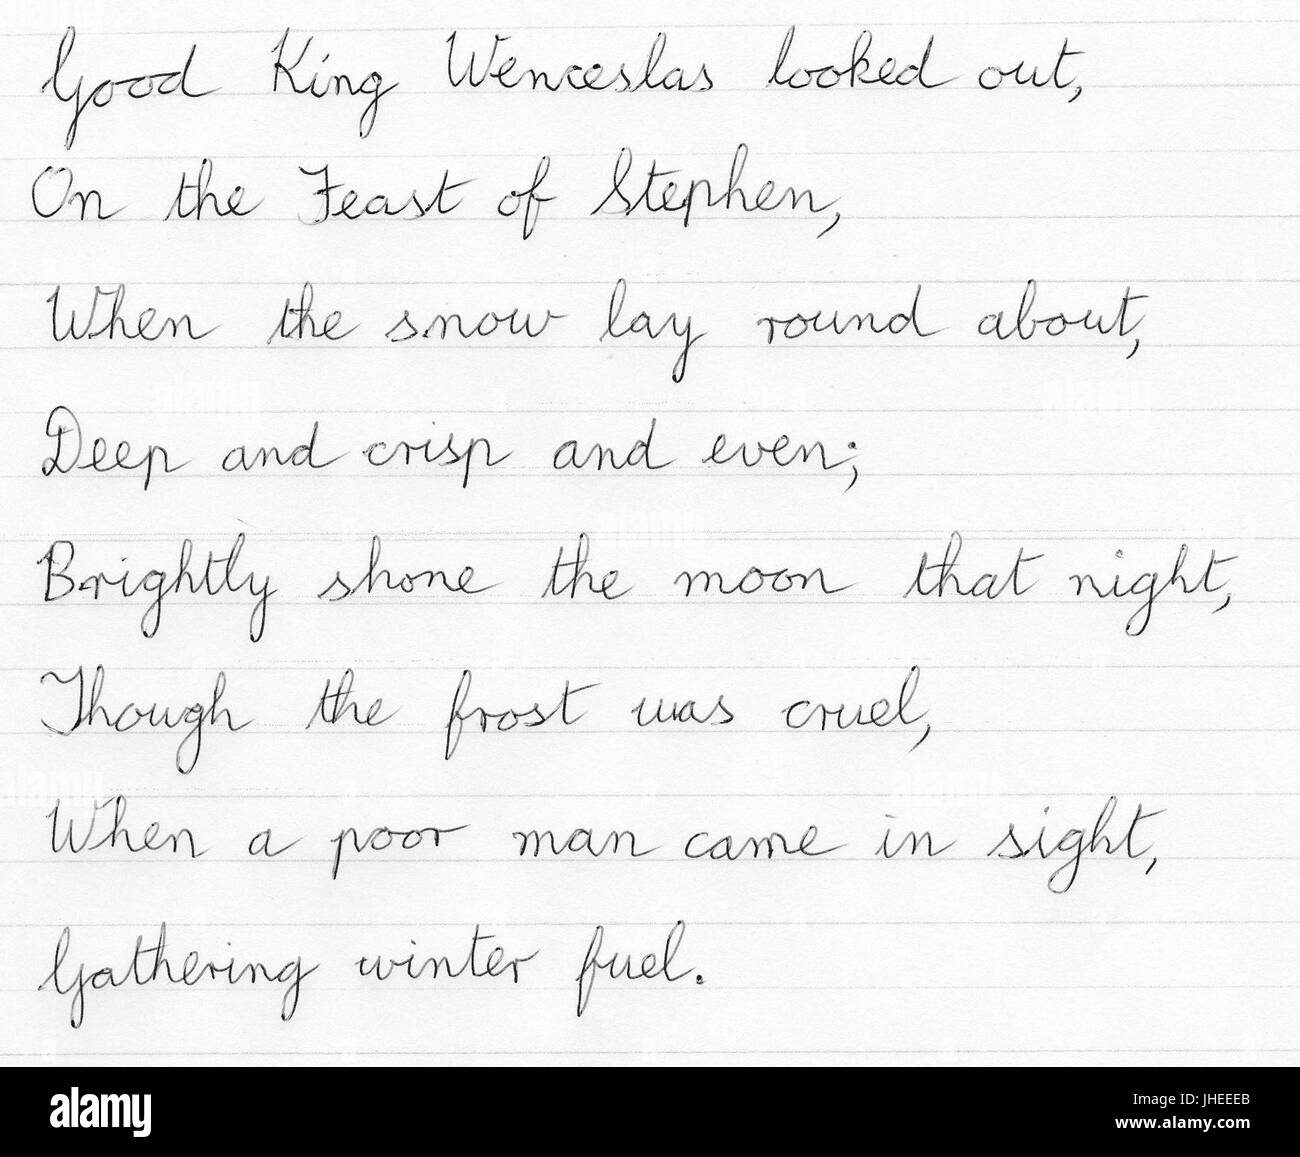 Good King Wenceslas looked out,
On the Feast of Stephen,
When the snow lay round about,
Deep and crisp and even;
Brightly shone the moon that night,
Though the frost was cruel,
When a poor man came in sight,
Gathering winter fuel.
alamy stock photo
JHEEEB
www.alamy.com